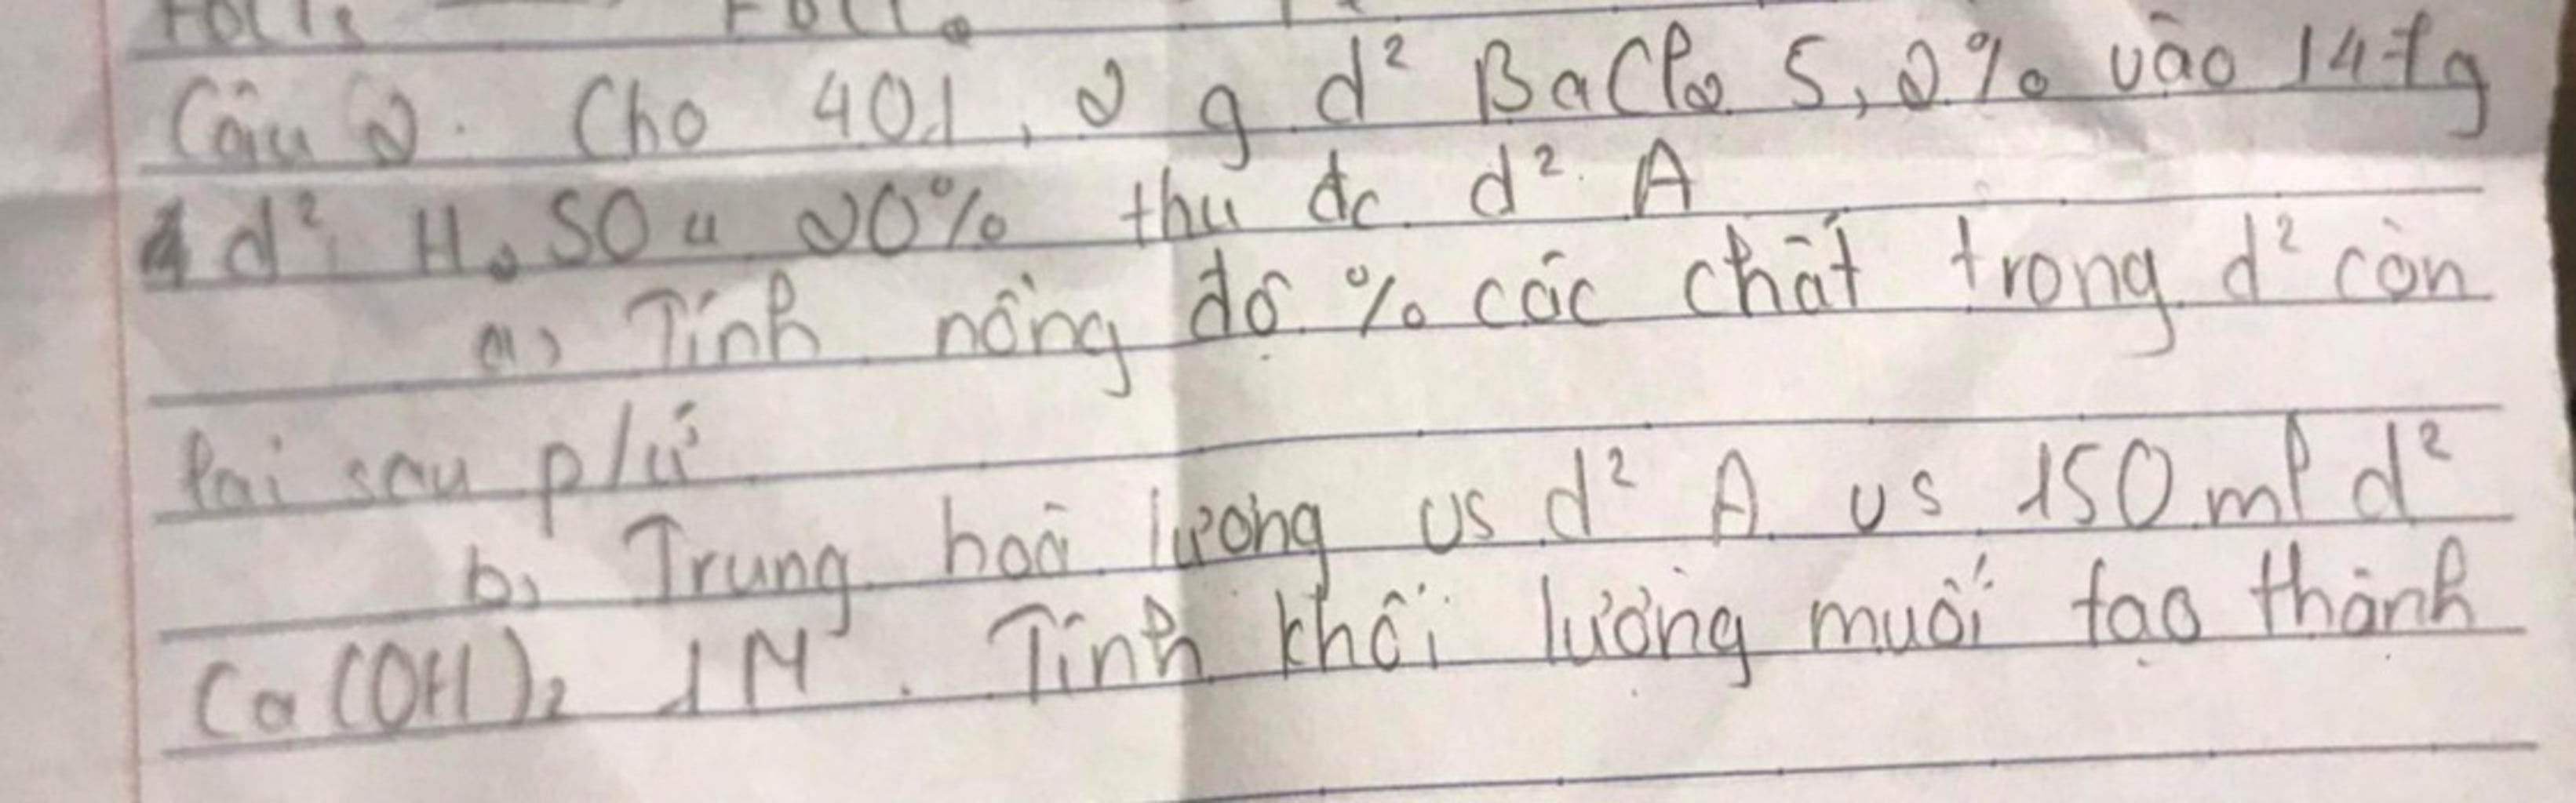 Câu 2. Cho 401,2 g d² BaCl2 5,2% vào 147g
d² H2SO4 20% thu đc d² A
a, Tính nồng độ % các chất trong d² còn
lại sau p/ứ
b, Trung hoà lượng vs d² A vs 150 ml d²
Ca(OH)2 1M. Tính khối lượng muối tạo thành